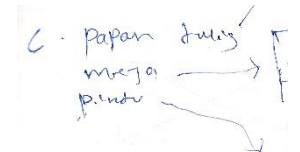 c. papan tulis
meja
pintu